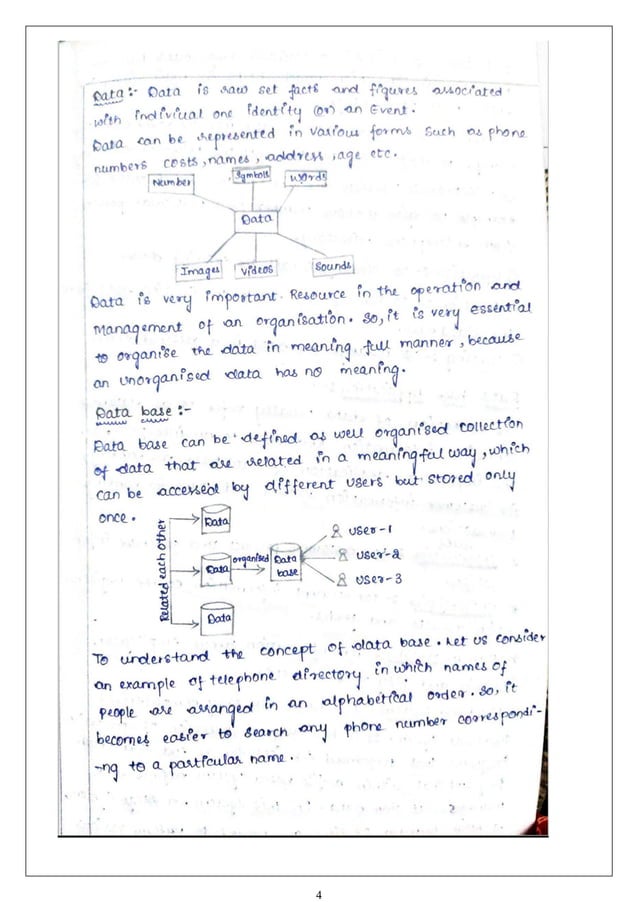 Data :- Data is raw set facts and figures associated
with indiviual one identity (or) an Event.
Data can be represented in various forms such as phone
numbers costs, names, address, age etc.
Number
Symbols
Words
Data
Images
Videos
Sounds
Data is very important. Resource in the operation and
Management of an organisation. so, it is very essential
to organise the data in meaning full manner, because
an unorganised data has no meaning.
Data base :-
Data base can be defined as well organised collection
of data that are related in a meaningful way, which
can be accessed by different users but stored only
once.
Related each other
Data
Data
Data
organised
Data
base
user-1
user-2
user-3
To understand the concept of data base. Let us consider
an example of telephone directory in which names of
people are arranged in an alphabetical order. so, it
becomes easier to search any phone number correspondi-
-ng to a particular name.
4